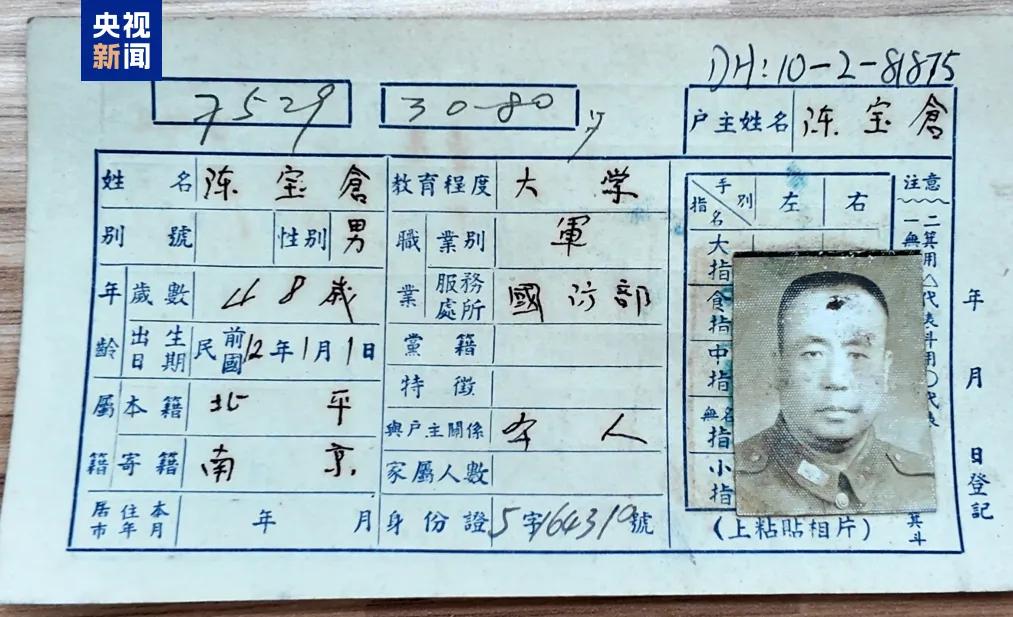 央视
新闻
DH:10-2-81875
7529
30-80
户主姓名 陈宝倉
姓名 陈宝倉
教育程度 大学
別號
性別 男
職業 業別 軍
年齡 歲數 48歲
服務處所 國防部
出生日期 民國前12年1月1日
黨籍
特徵
屬籍 本籍 北平
與户主關係 本人
寄籍 南京
家屬人數
居住本市年月 年 月
身份證 5字164319號
手別 指名 左 右
大指
食指
中指
無名指
小指
(上粘貼相片)
注意
二箕用△代表斗用〇代表
一無
箕斗
年 月 日登記